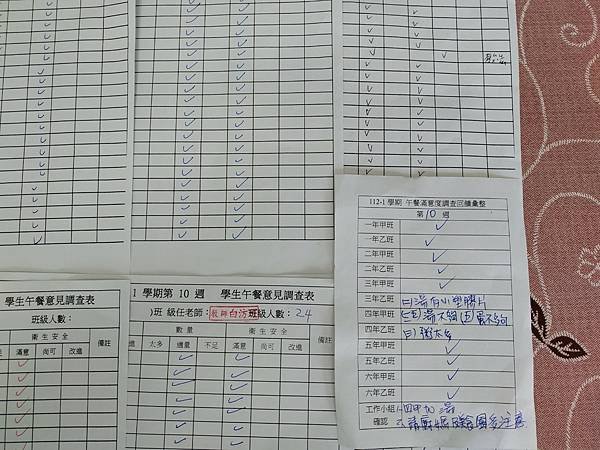 112-1 學期 午餐滿意度調查回饋彙整
第 10 週
一年甲班 ✓
一年乙班 ✓
二年甲班 ✓
二年乙班 ✓
三年甲班 ✓
三年乙班 (一)湯有小塑膠片
四年甲班
四年乙班
五年甲班 ✓
五年乙班 ✓
六年甲班 ✓
六年乙班 ✓
工作小組
確認
學生午餐意見調查表
班級人數：
衛生安全
備註
滿意 尚可 改進
1 學期第 10 週 學生午餐意見調查表
)班 級任老師： 班級人數： 24
數量 衛生安全
備註
進 太多 適量 不足 滿意 尚可 改進